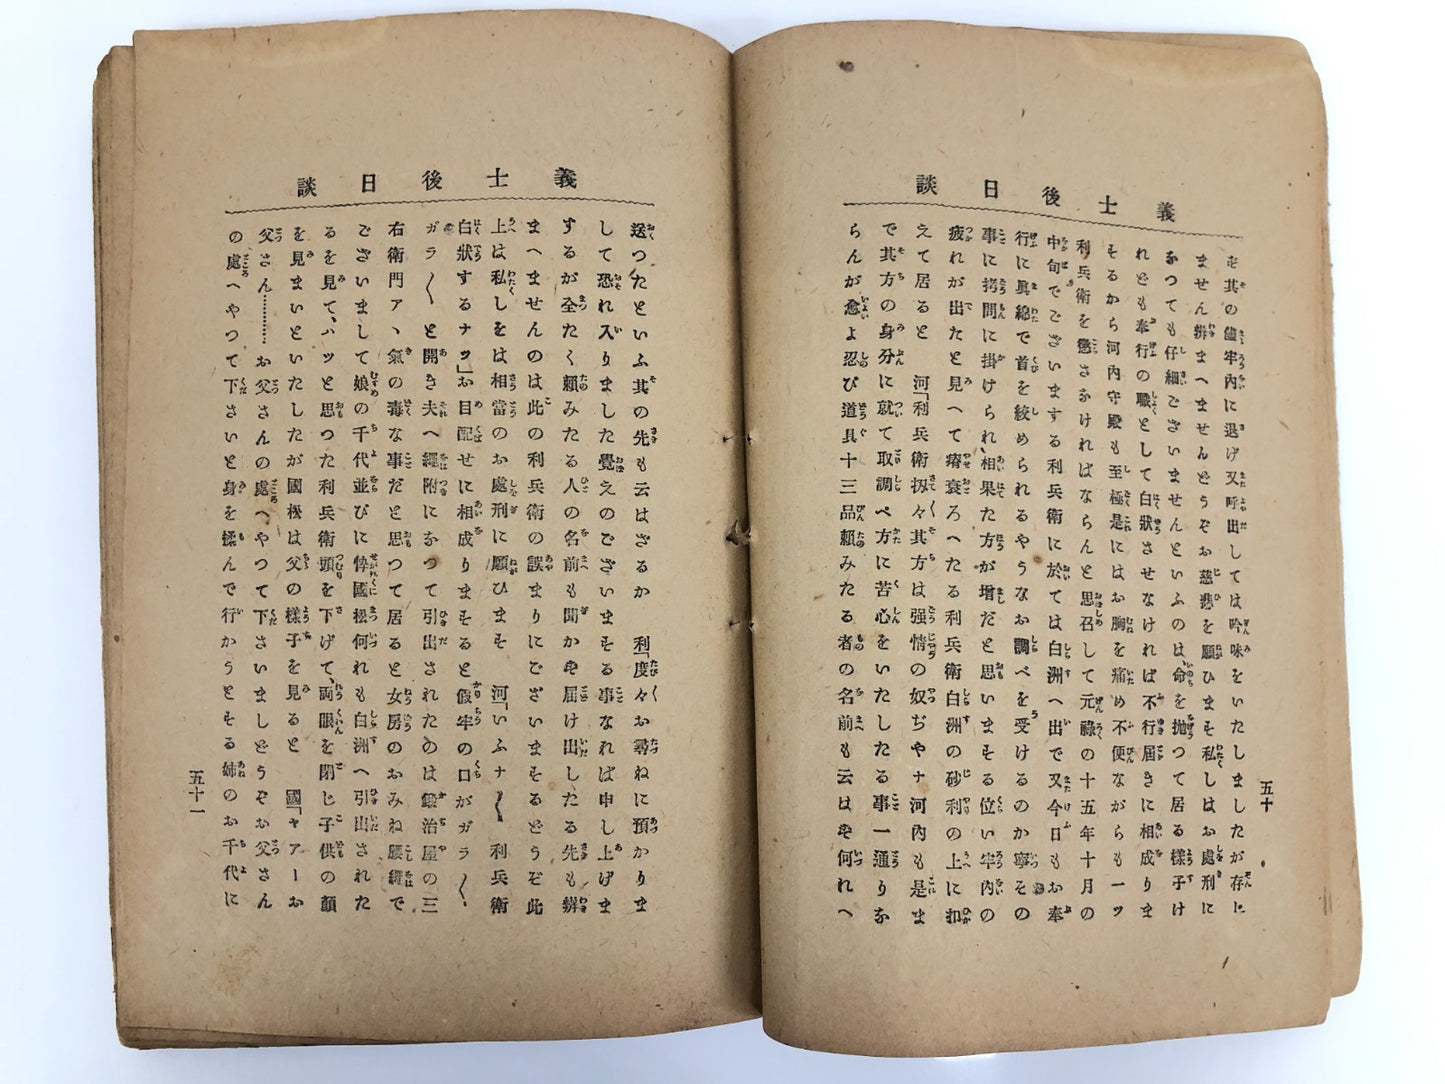 義士後日談
其の儘牢内に退げ又呼出しては吟味をいたしましたが存じ
ません辨まへませんどうぞお慈悲を願ひまそ私しはお處刑に
なつても仔細ございませんといふのは命を抛つて居る樣子け
れども奉行の職として白狀させなければ不行屆きに相成りま
そるから河内守殿も至極是にはお胸を痛め不便ながらも一ッ
利兵衛を懲さなければならんと思召して元祿の十五年十月の
中旬でございまする利兵衛に於ては白洲へ出で又今日もお奉
行に眞綿で首を絞められるやうなお調べを受けるのか寧その
事に拷問に掛けられ、相果た方が增だと思いまそる位い牢内の
疲れが出たと見へて瘠衰ろへたる利兵衛白洲の砂利の上に扣
えて居ると 河「利兵衛扨々其方は强情の奴ぢやナ河内も是ま
で其方の身分に就て取調べ方に苦心をいたしたる事一通りな
らんが愈よ忍び道具十三品賴みたる者の名前も云はず何れへ
五十
義士後日談
送つたといふ其の先も云はざるか 利「度々お尋ねに預かりま
して恐れ入りました覺えのございまそる事なれば申し上げま
するが全たく賴みたる人の名前も聞かず届け出したる先も辨
まへませんのは此の利兵衛の誤まりにございまそるどうぞ此
上は私しをは相當のお處刑に願ひまそ 河「いふナ〱 利兵衛
白狀するナッ」お目配せに相成りまそると假牢の口がガラ〱
ガラ〱と開き夫へ繩附になつて引出されたのは鍛治屋の三
右衛門アヽ氣の毒な事だと思つて居ると女房のおみね腰繩で
ございまして娘の千代並びに忰國松何れも白洲へ引出された
るを見て、ハッと思つた利兵衛頭を下げて、両眼を閉じ子供の顏
を見まいといたしたが國松は父の樣子を見ると 國「ヤアーお
父さん…………お父さんの處へやつて下さいましどうぞお父さん
の處へやつて下さいと身を揉んで行かうとそる姉のお千代に
五十一